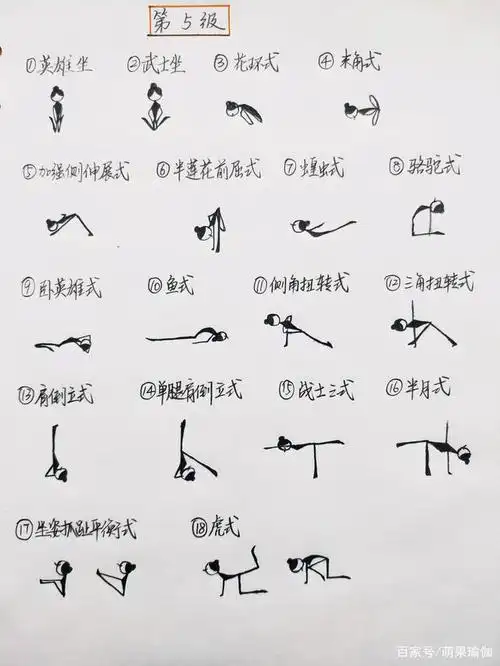 第5级
①英雄坐 ②武士坐 ③花环式 ④束角式
⑤加强侧伸展式 ⑥半莲花前屈式 ⑦蝗虫式 ⑧骆驼式
⑨卧英雄式 ⑩鱼式 ⑪侧角扭转式 ⑫三角扭转式
⑬肩倒立式 ⑭单腿肩倒立式 ⑮战士三式 ⑯半月式
⑰坐姿抓趾平衡式 ⑱虎式
百家号/萌果瑜伽